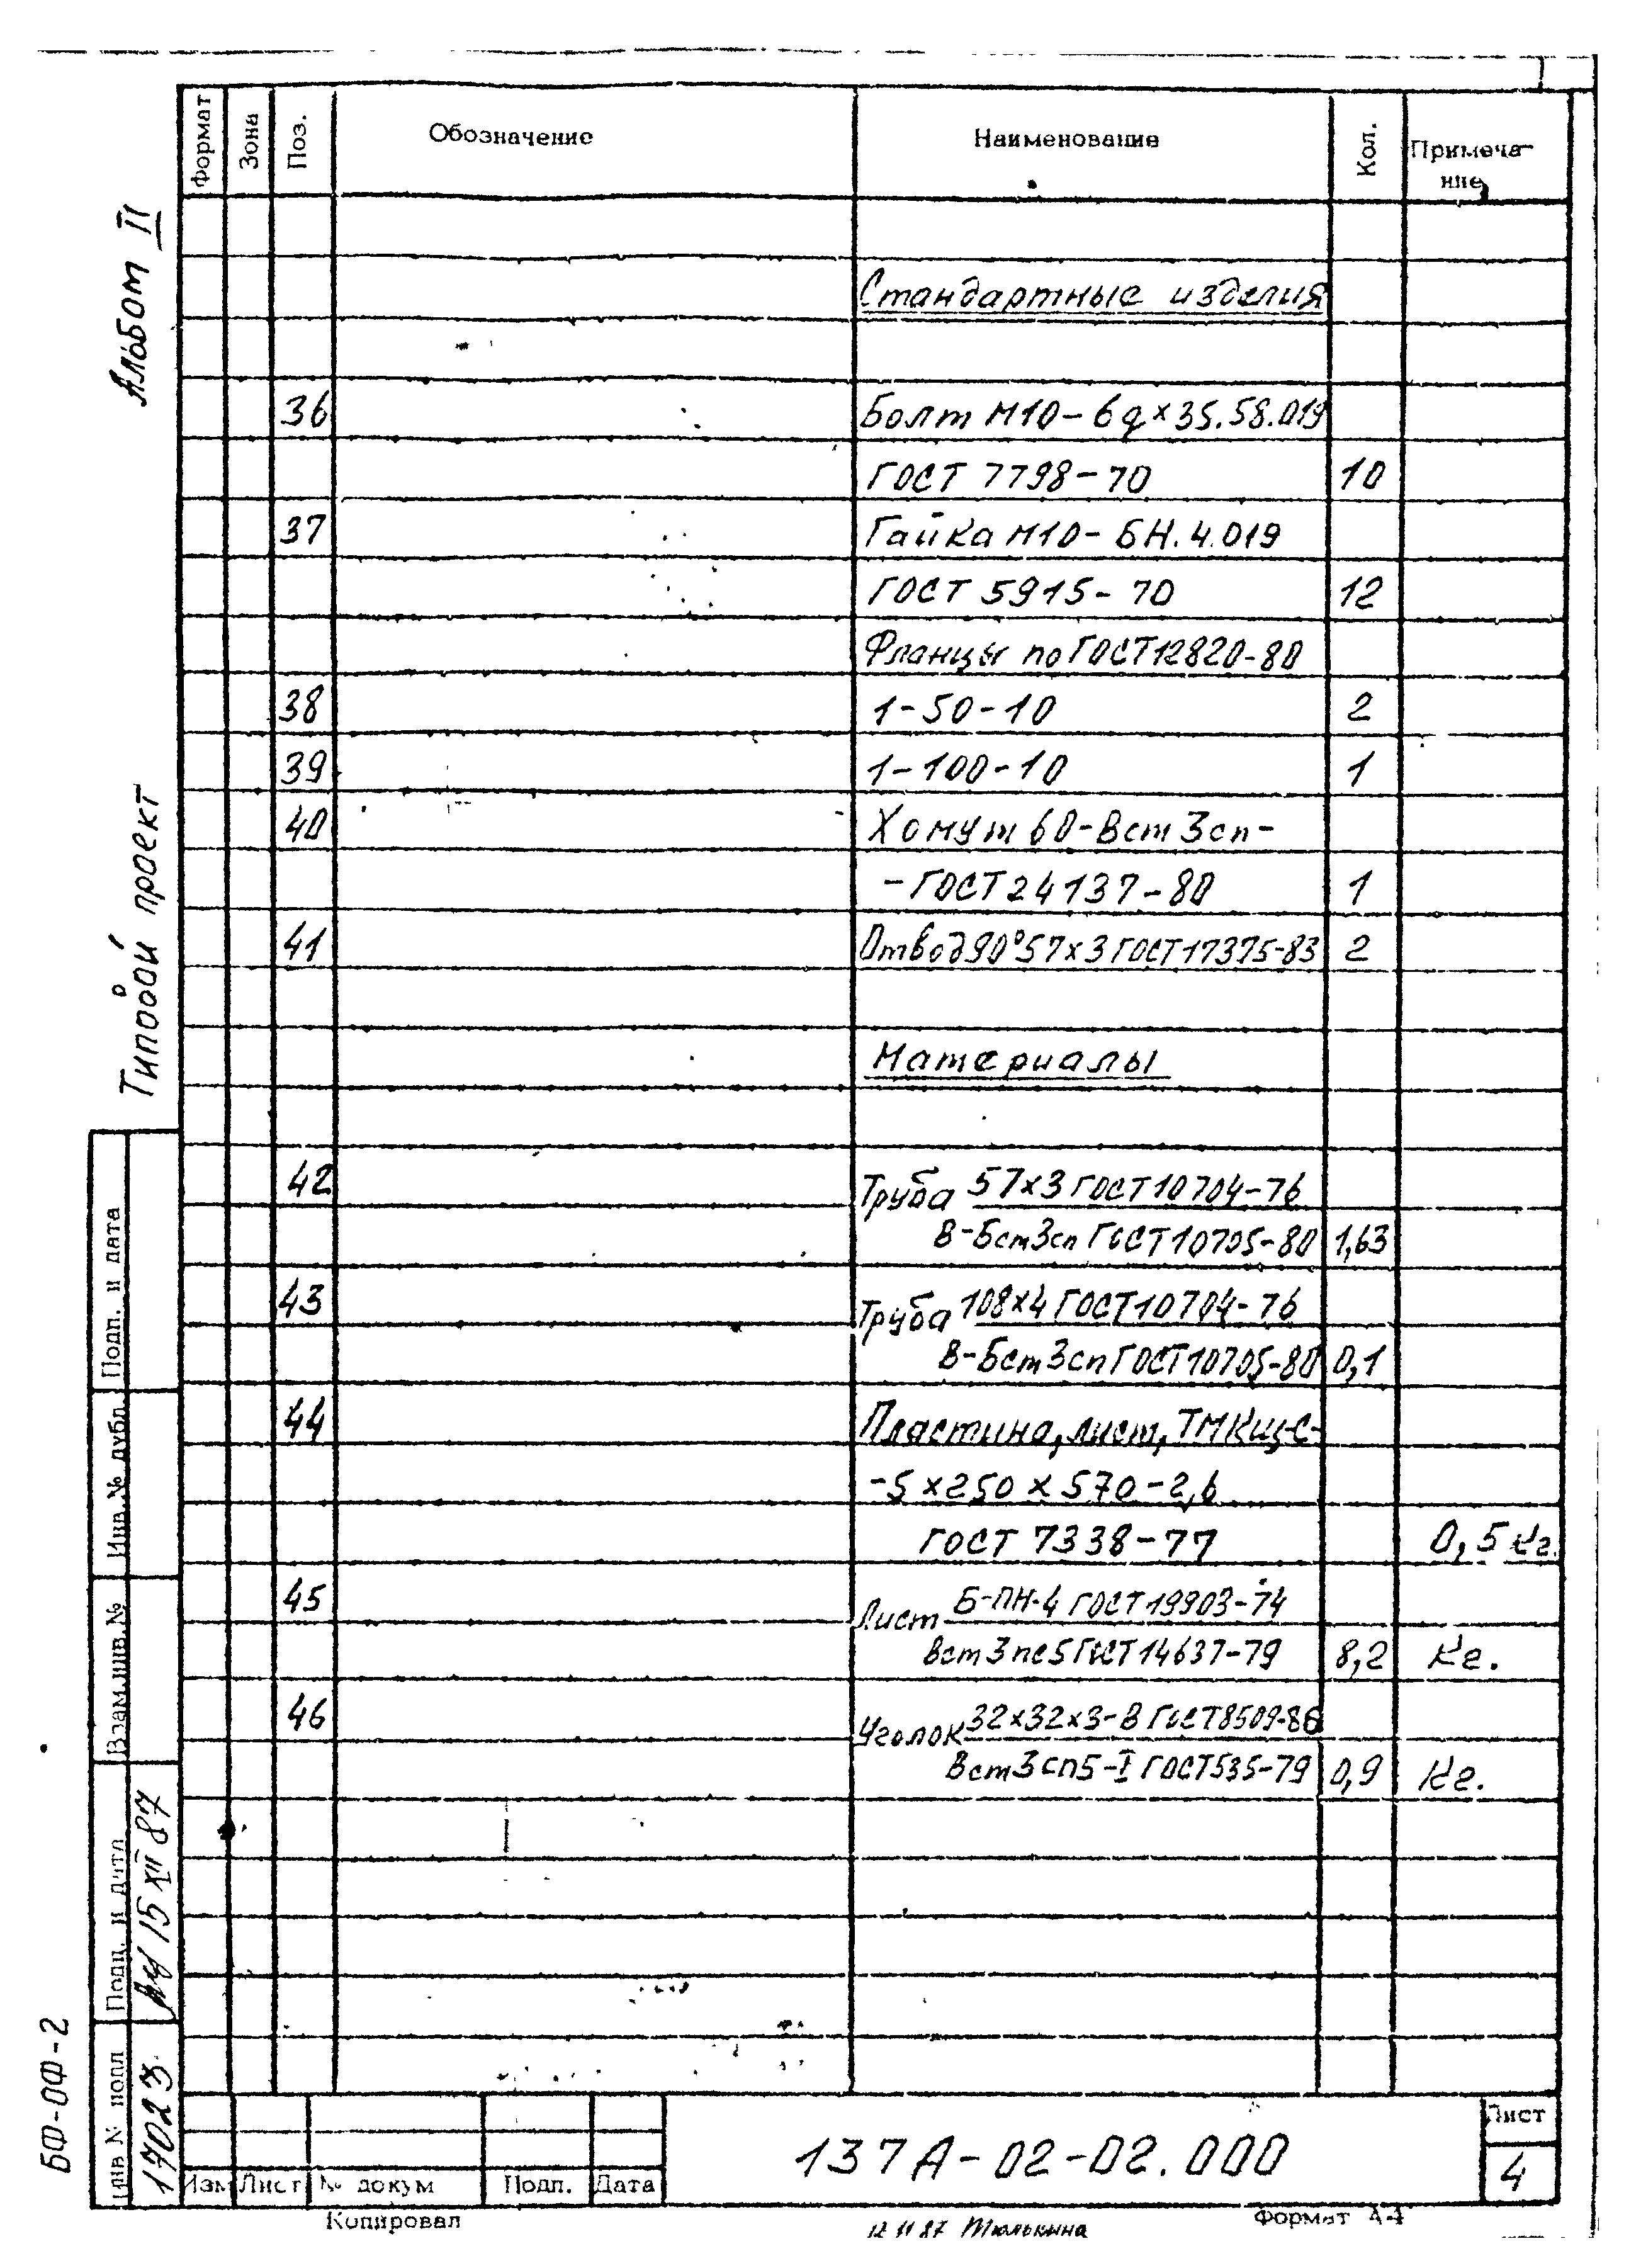 Формат Зона Поз. Обозначение Наименование Кол. Примеча-
ние
Альбом II
Стандартные изделия
36 Болт М10-6g×35.58.019
ГОСТ 7798-70 10
37 Гайка М10-6Н.4.019
ГОСТ 5915-70 12
Фланцы по ГОСТ12820-80
38 1-50-10 2
39 1-100-10 1
Типовой проект
40 Хомут 60-Вст3сп-
-ГОСТ24137-80 1
41 Отвод90°57×3 ГОСТ17375-83 2
Материалы
42 Труба 57×3 ГОСТ10704-76
В-Бст3сп ГОСТ10705-80 1,63
43 Труба 108×4 ГОСТ10704-76
В-Бст3сп ГОСТ10705-80 0,1
44 Пластина, лист, ТМКЩ-С-
-5×250×570-2,6
ГОСТ 7338-77 0,5 кг.
45 Лист Б-ПН-4 ГОСТ19903-74
Вст3пс5 ГОСТ14637-79 8,2 кг.
46 Уголок 32×32×3-В ГОСТ8509-86
Вст3сп5-I ГОСТ535-79 0,9 кг.
Подп. и дата
Инв. № дубл.
Взам.инв.№
Подп. и дата 15 XII 87
Инв № подл 17023
БФ-ОФ-2
Изм Лист № докум Подп. Дата
137А-02-02.000
Лист
4
Копировал 12 11 87 Тюлькина Формат А4